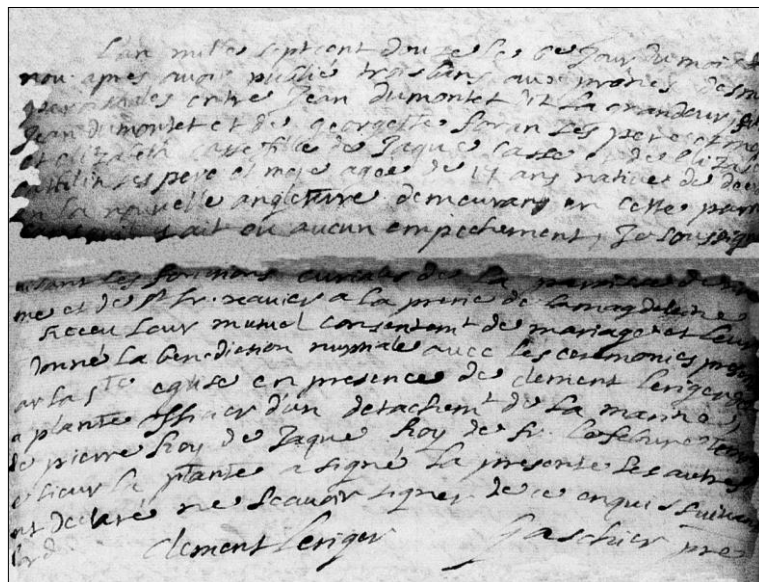 L'an mille septcent douze le 6e Jour du mois
nou. apres avoir publié trois bans aux prones des m
entre Jean dumontet dit La Grandeur fil
Jean dumontet et de georgette floran Les pere et me
et elizabeth casse fille de Jaque Casse et de Elizab
ses pere et mere agee de 17 ans natives de
en la nouvelle angleterre demeurans en cette paroi
ait ou aucun empechement, Je soussign
isant les fonctions curiales de la paroisse de
me et de st fr. xavier a la prerie de lamagdeleine
Receu Leur mutuel consentemt de mariage et Leur
Donné La benediction nuptiale avec les ceremonies
ar la Ste eglise en presence de clement Leriger de
a plante officier d'un detachemt de La marine,
de pierre Roy de Jaque Roy de fr. Lefebure
e sieur la plante a signé La presente Les autres
nt declaré ne scavoir signer de ce enquis suivant
lord
clement Leriger pre